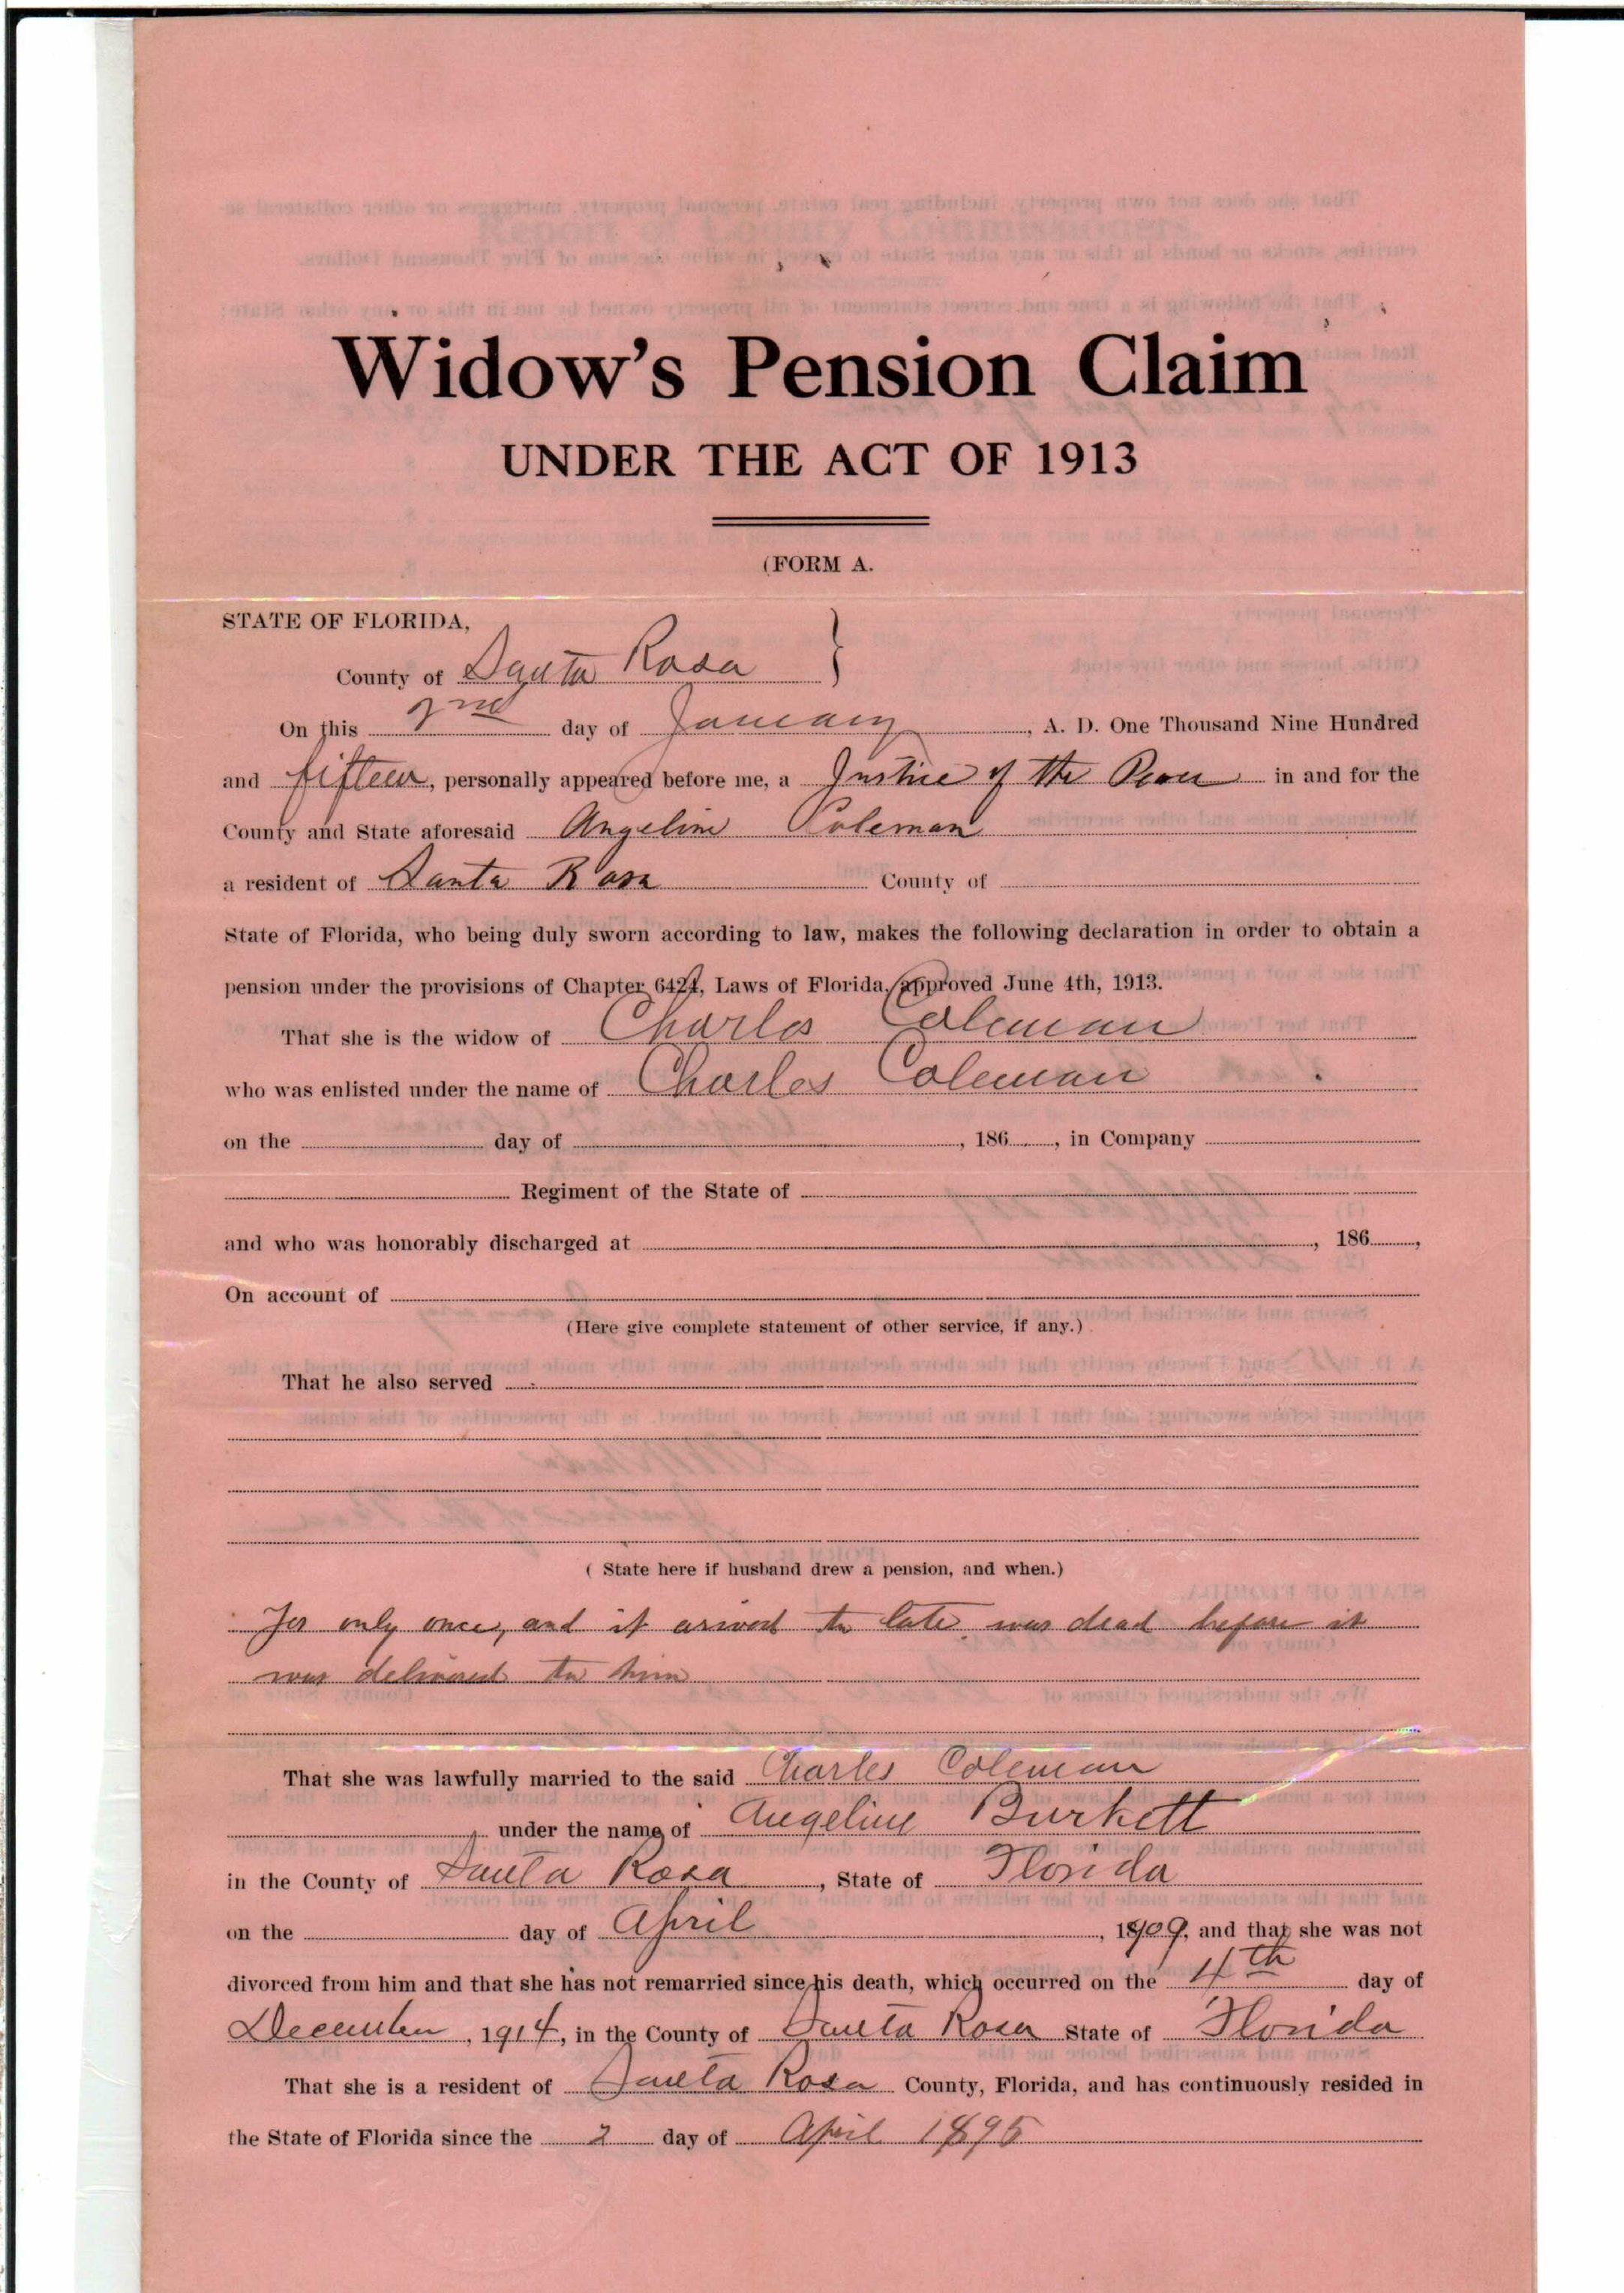 Widow's Pension Claim
UNDER THE ACT OF 1913
(FORM A.
STATE OF FLORIDA,
County of Santa Rosa }
On this 2nd day of January, A. D. One Thousand Nine Hundred
and fifteen, personally appeared before me, a Justice of the Peace in and for the
County and State aforesaid Angeline Coleman
a resident of Santa Rosa County of
State of Florida, who being duly sworn according to law, makes the following declaration in order to obtain a
pension under the provisions of Chapter 6424, Laws of Florida, approved June 4th, 1913.
That she is the widow of Charles Coleman
who was enlisted under the name of Charles Coleman
on the day of , 186 , in Company
Regiment of the State of
and who was honorably discharged at , 186 ,
On account of
(Here give complete statement of other service, if any.)
That he also served
( State here if husband drew a pension, and when.)
Yes only once, and it arived to late was dead before it
was delivered to him
That she was lawfully married to the said Charles Coleman
under the name of Angeline Burkett
in the County of Santa Rosa, State of Florida
on the day of April, 1909, and that she was not
divorced from him and that she has not remarried since his death, which occurred on the 4th day of
December, 1914, in the County of Santa Rosa State of Florida
That she is a resident of Santa Rosa County, Florida, and has continuously resided in
the State of Florida since the 2 day of April 1895